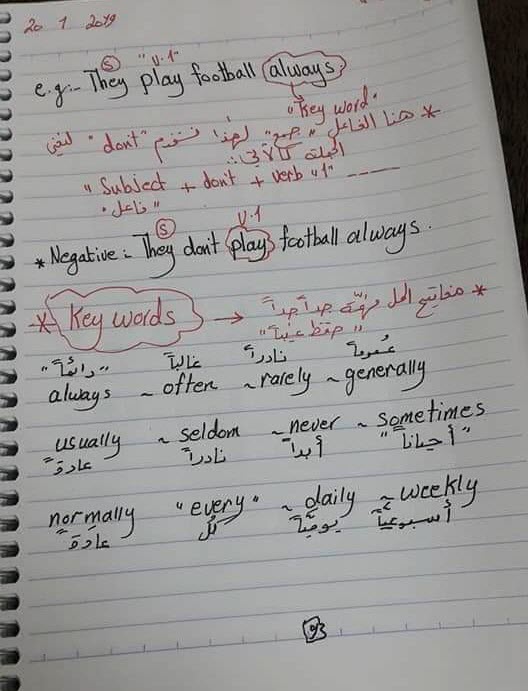 20 1 2019
(S) "V.1"
e.g:- They play football always
"Key word"
* هنا الفاعل "جمع" لهذا نستخدم "don't" لنفي
الجملة كالآتي:
"Subject + don't + verb "1" ـــــ
"فاعل"
(S) V.1
* Negative: They don't play football always.
* Key words → * مفاتيح الحل مهمّة جداً جداً
"حفظ غيباً"
"دائماً" غالباً نادراً عُموماً
always ~ often ~ rarely ~ generally
usually ~ seldom ~ never ~ sometimes
عادةً نادراً أبداً "أحياناً"
normally "every" ~ daily ~ weekly
عادَةً كُل يوميّاً أسبوعيّاً
93